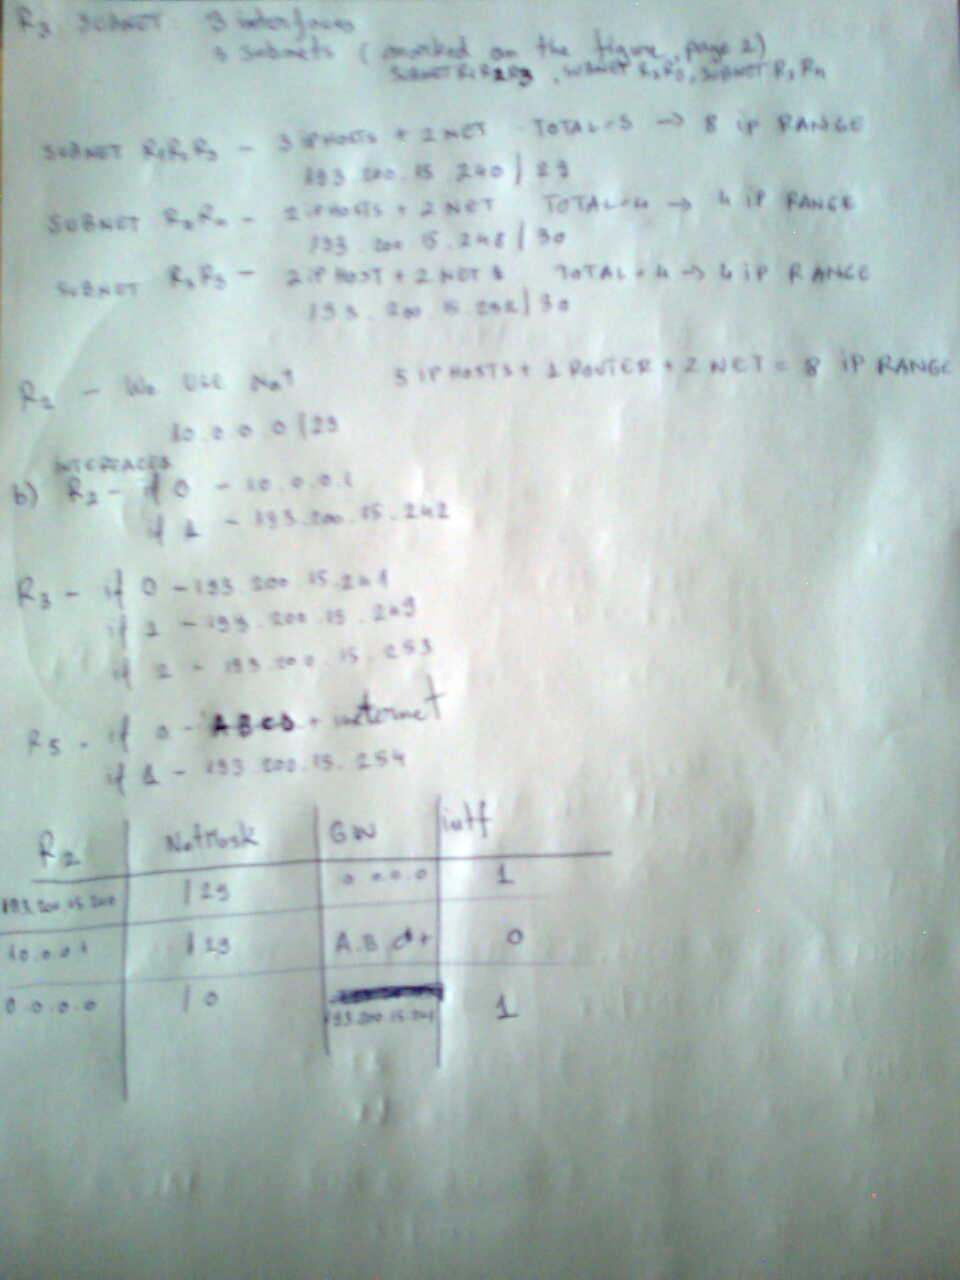 R3 SUBNET: 3 interfaces
3 subnets (marked on the figure, page 2)
SUBNET R1R2R3, SUBNET R3R5, SUBNET R3R4
SUBNET R1R2R3 - 3 IP HOSTS + 2 NET TOTAL=5 → 8 ip RANGE
193.200.15.240/29
SUBNET R3R4 - 2 IP HOSTS + 2 NET TOTAL=4 → 4 iP RANGE
193.200.15.248/30
SUBNET R3R5 - 2 IP HOST + 2 NET TOTAL=4 → 4 iP RANGE
193.200.15.252/30
R2 - We USE NAT 5 IP HOSTS + 1 ROUTER + 2 NET = 8 iP RANGE
10.0.0.0/29
INTERFACES
b) R2 - if 0 - 10.0.0.1
if 1 - 193.200.15.242
R3 - if 0 - 193.200.15.241
if 1 - 193.200.15.249
if 2 - 193.200.15.253
R5 - if 0 - ABCD
if 1 - 193.200.15.254
R2 NetMask GW intf
193.200.15.240 /29 0.0.0.0 1
10.0.0.1 /29 0
0.0.0.0 /0 193.200.15.241 1